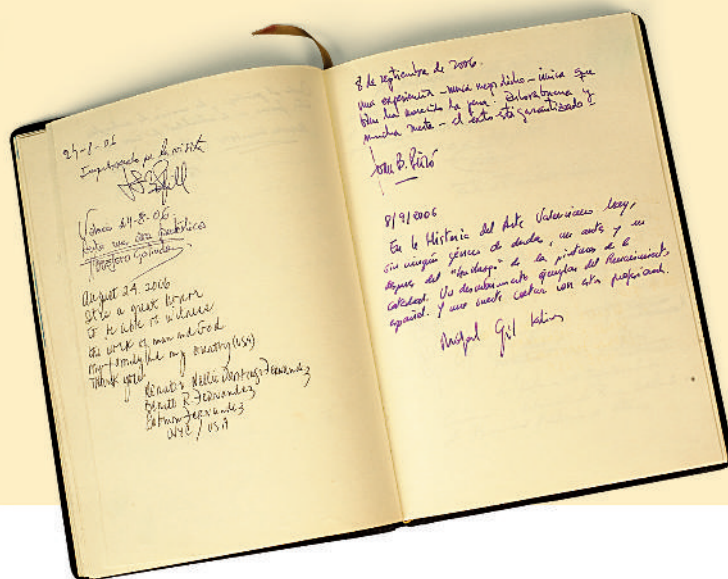 24-8-06
Impresionado por la visita
Valencia 24-8-06
Ante una obra
August 24, 2006
It is a great honor
to be able to witness
the work of man and God
my family and my country (USA)
Thank you!
Senator Nellie Santiago Fernandez
R. Fernandez
Fernandez
NYC / USA
8 de septiembre de 2006.
una experiencia – nunca mejor dicho – única que
bien ha merecido la pena. Enhorabuena y
mucha suerte – el éxito está garantizado!
Joan B.
8/9/2006
En la Historia del Arte Valenciano hay,
sin ningún género de dudas, un antes y un
después del "hallazgo" de las pinturas de la
catedral. Un descubrimiento ejemplar del Renacimiento
español. Y una suerte contar con estos profesionales.
Miguel Gil